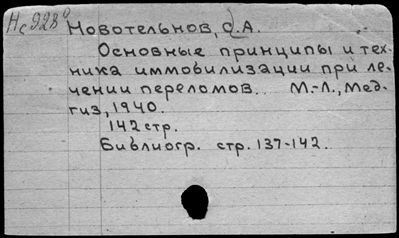 Нс928
Новотельнов, С.А.
Основные принципы и тех-
ника иммобилизации при ле-
чении переломов. М.-Л., Мед-
гиз, 1940.
142 стр.
Библиогр. стр. 137-142.